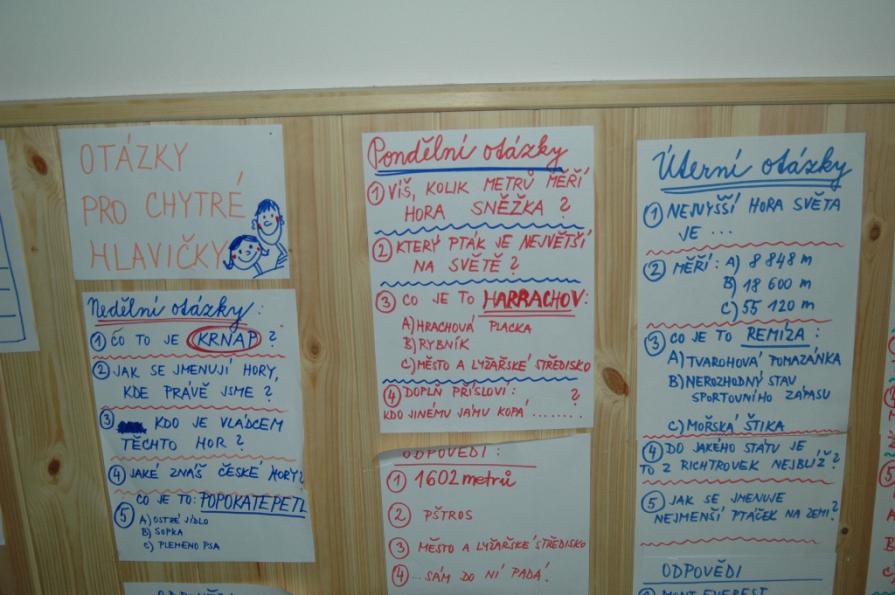 OTÁZKY
PRO CHYTRÉ
HLAVIČKY
Nedělní otázky:
1 ČO TO JE KRNAP ?
2 JAK SE JMENUJÍ HORY,
KDE PRÁVĚ JSME ?
3 KDO JE VLÁDCEM
TĚCHTO HOR ?
4 JAKÉ ZNÁŠ ČESKÉ HORY?
5 CO JE TO: POPOKATEPETL
A) OSTRÉ JÍDLO
B) SOPKA
C) PLEMENO PSA
Pondělní otázky
1 VÍŠ, KOLIK METRŮ MĚŘÍ
HORA SNĚŽKA ?
2 KTERÝ PTÁK JE NEJVĚTŠÍ
NA SVĚTĚ ?
3 CO JE TO HARRACHOV:
A) HRACHOVÁ PLACKA
B) RYBNÍK
C) MĚSTO A LYŽAŘSKÉ STŘEDISKO
4 DOPLŇ PŘÍSLOVÍ: ?
KDO JINÉMU JÁMU KOPÁ ........
ODPOVĚDI:
1 1602 metrů
2 PŠTROS
3 MĚSTO A LYŽAŘSKÉ STŘEDISKO
4 ... SÁM DO NÍ PADÁ!
Úterní otázky
1 NEJVYŠŠÍ HORA SVĚTA
JE ...
2 MĚŘÍ: A) 8 848 m
B) 18 600 m
C) 55 120 m
3 CO JE TO REMÍZA :
A) TVAROHOVÁ POMAZÁNKA
B) NEROZHODNÝ STAV
SPORTOVNÍHO ZÁPASU
C) MOŘSKÁ ŠTIKA
4 DO JAKÉHO STÁTU JE
TO Z RICHTROVEK NEJBLÍŽ ?
5 JAK SE JMENUJE
NEJMENŠÍ PTÁČEK NA ZEMI?
ODPOVĚDI
MONT EVEREST